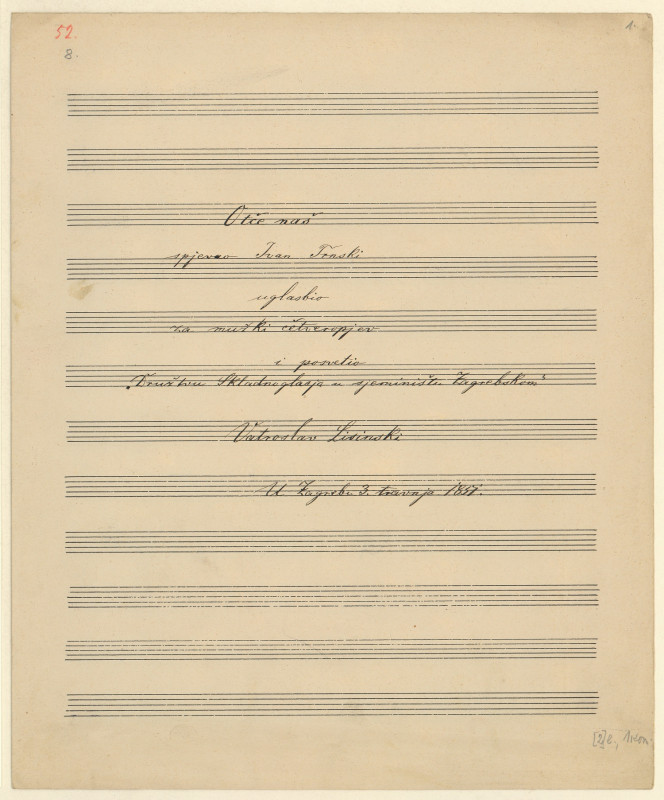 52.
8.
1.
Otče naš
spjevao Ivan Trnski
uglasbio
za mužki četveropjev
i posvetio
„Družtvu Skladnoglasja u sjemeništu Zagrebskom“
Vatroslav Lisinski
U Zagrebu 3. travnja 1851.
[2]l.,